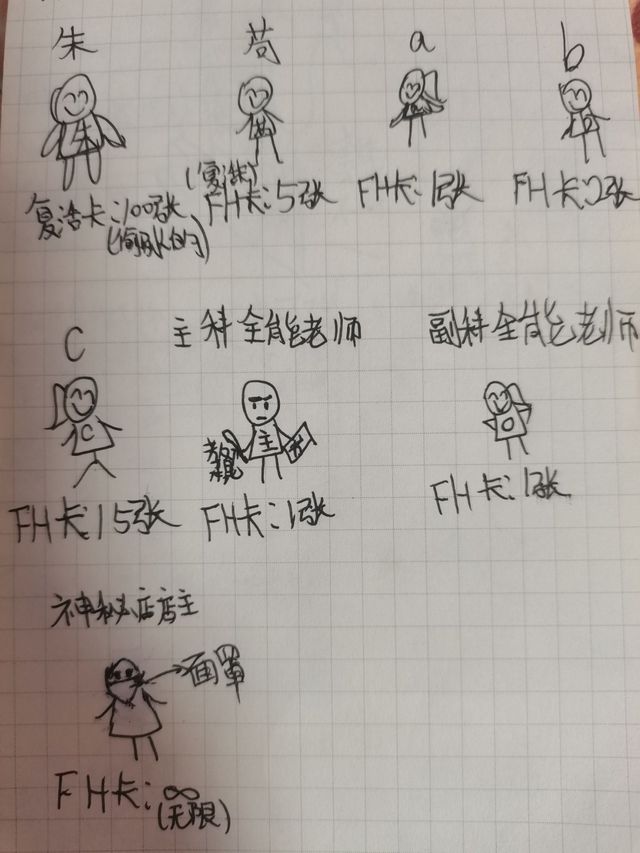 朱 苟 a b
朱
(复活卡)
复活卡:100张 FH卡:5张 FH卡:1张 FH卡:2张
C 主科全能老师 副科全能老师
C 主
FH卡:15张 FH卡:1张 FH卡:1张
神秘店店主
面罩
FH卡:∞
(无限)